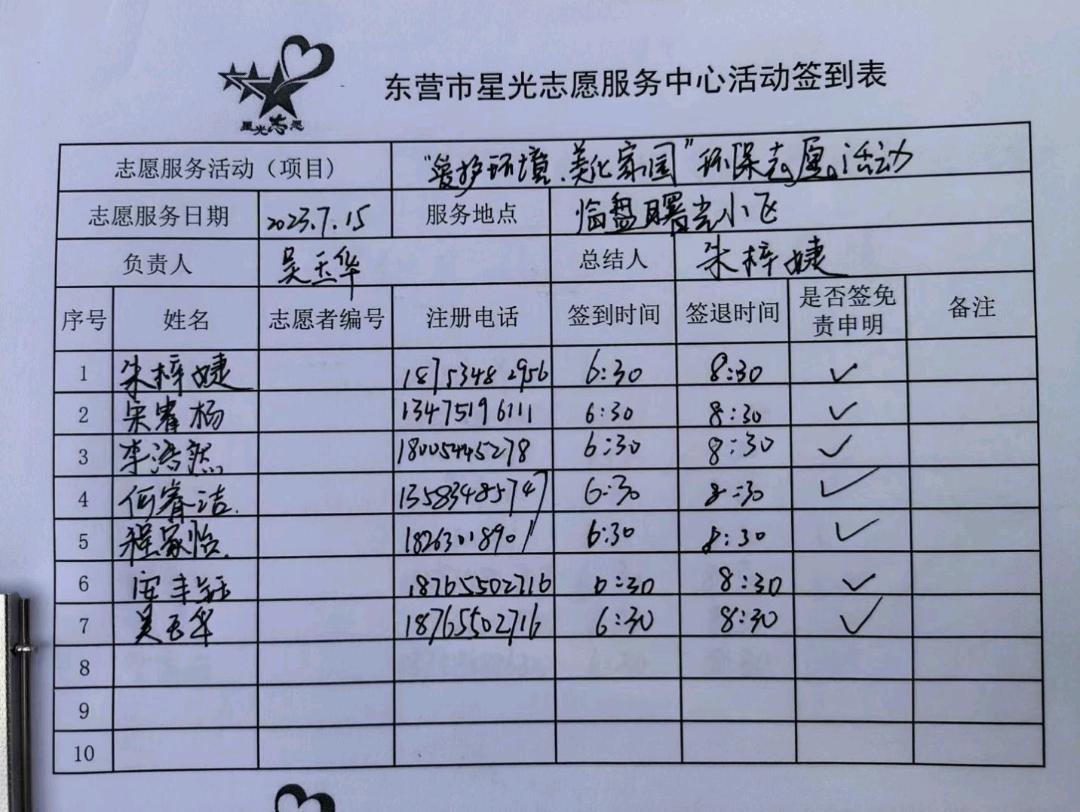 星光志愿
东营市星光志愿服务中心活动签到表
志愿服务活动（项目） "爱护环境、美化家园"环保志愿活动
志愿服务日期 2023.7.15 服务地点 临盘曙光小区
负责人 吴玉华 总结人 朱梓婕
序号 姓名 志愿者编号 注册电话 签到时间 签退时间 是否签免责申明 备注
1 朱梓婕 18753482956 6:30 8:30 ✓
2 宋睿杨 13475196111 6:30 8:30 ✓
3 李浩然 18005445278 6:30 8:30 ✓
4 何睿洁. 13583485747 6:30 8:30 ✓
5 程家怡. 18263018901 6:30 8:30 ✓
6 安丰钰 18765502716 6:30 8:30 ✓
7 吴玉华 18765502716 6:30 8:30 ✓
8
9
10